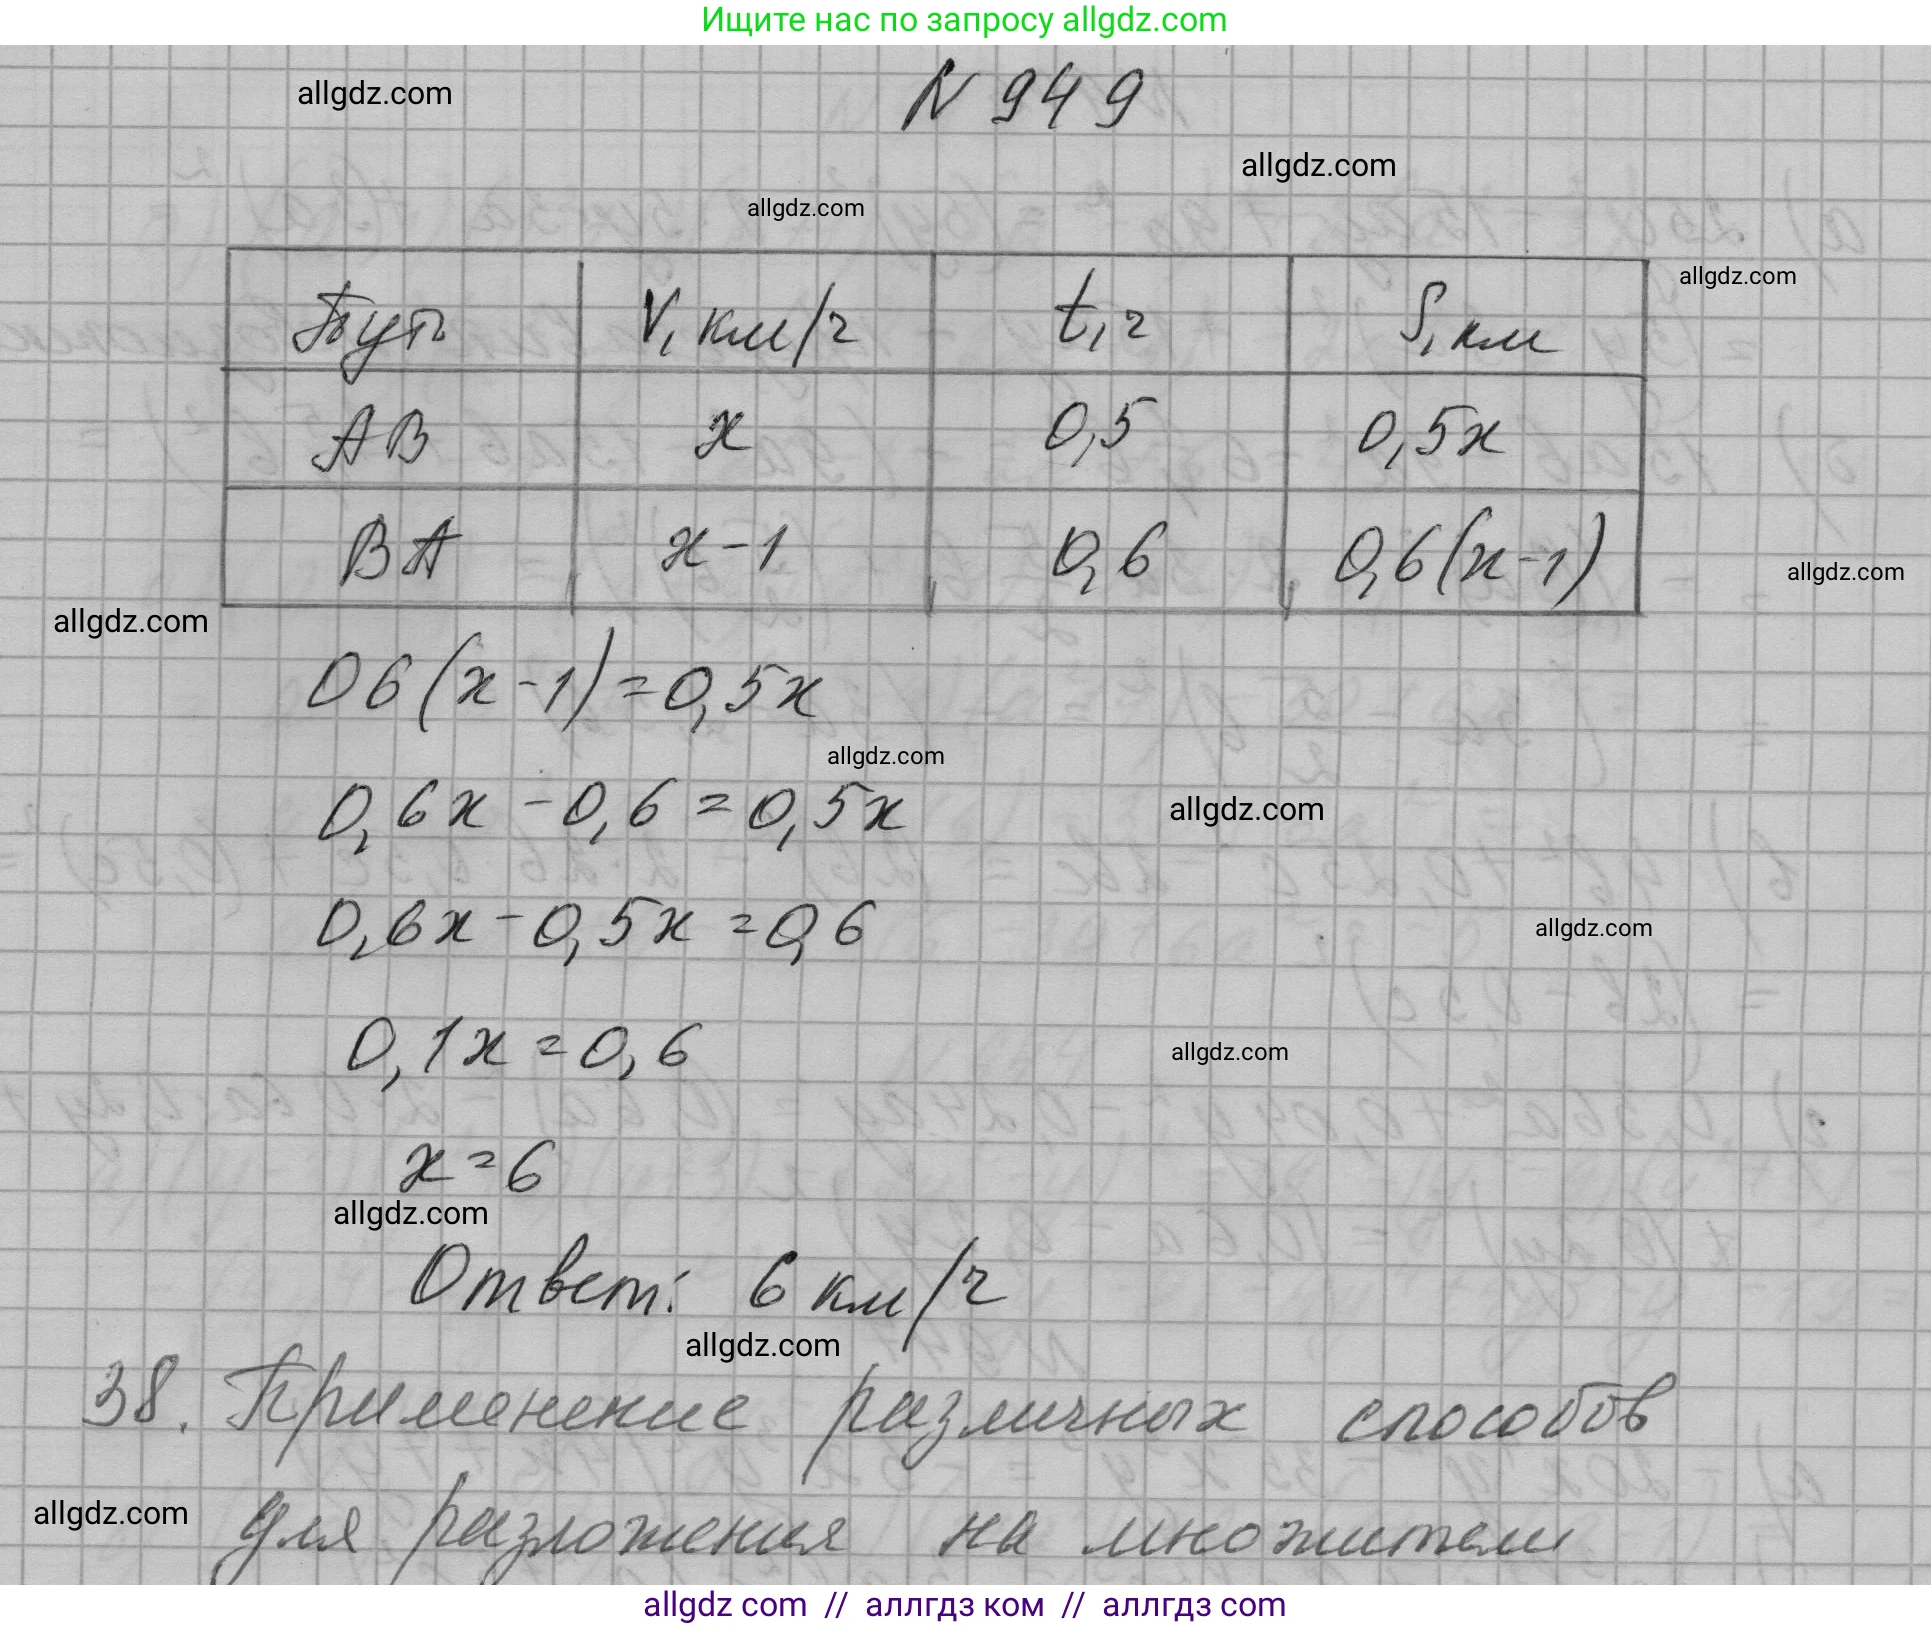 Ищите нас по запросу allgdz.com
allgdz.com
N 949
allgdz.com
allgdz.com
allgdz.com
Путь V, км/ч t, ч S, км
AB x 0,5 0,5x
BA x-1 0,6 0,6(x-1)
allgdz.com
allgdz.com
06(x-1)=0,5x
allgdz.com
0,6x-0,6=0,5x
allgdz.com
0,6x-0,5x=0,6
allgdz.com
0,1x=0,6
allgdz.com
x=6
allgdz.com
Ответ: 6 км/ч
allgdz.com
38. Применение различных способов
allgdz.com
для разложения на множители
allgdz com // аллгдз ком // аллгдз com